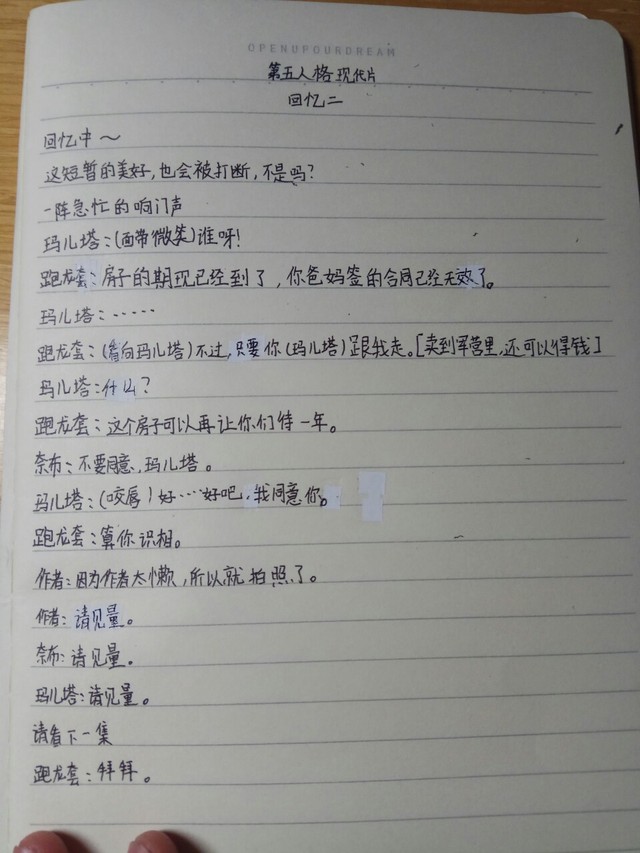 OPENUPOURDREAM
第五人格现代片
回忆二
回忆中～
这短暂的美好,也会被打断,不是吗?
一阵急忙的响门声
玛儿塔:(面带微笑)谁呀!
跑龙套:房子的期现已经到了,你爸妈签的合同已经无效了。
玛儿塔:·····
跑龙套:(看向玛儿塔)不过,只要你(玛儿塔)跟我走。[卖到军营里,还可以得钱]
玛儿塔:什么?
跑龙套:这个房子可以再让你们待一年。
奈布:不要同意,玛儿塔。
玛儿塔:(咬唇)好…好吧,我同意你。
跑龙套:算你识相。
作者:因为作者太懒,所以就拍照了。
作者:请见量。
奈布:请见量。
玛儿塔:请见量。
请看下一集
跑龙套:拜拜。